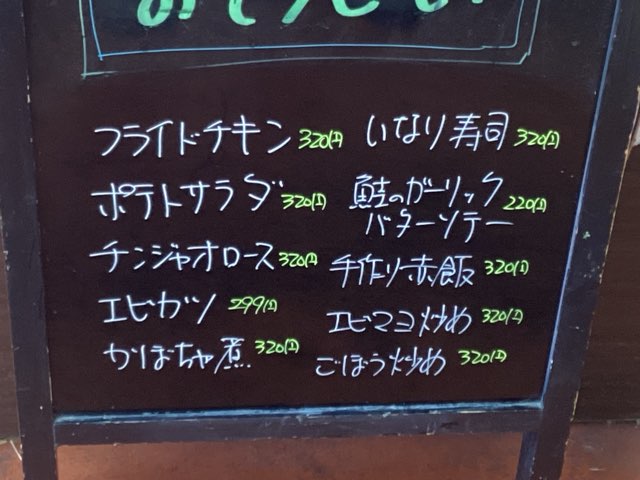 フライドチキン 320円
ポテトサラダ 320円
チンジャオロース 320円
エビカツ 299円
かぼちゃ煮 320円
いなり寿司 320円
鮭のガーリック
バターソテー 220円
手作り赤飯 320円
エビマヨ炒め 320円
ごぼう炒め 320円